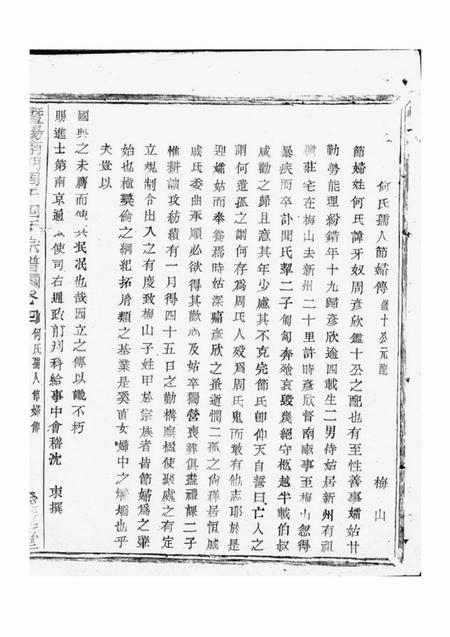 何氏孺人節婦傳 鑑十公元配 梅山
節婦姓何氏諱牙奴周彥欣鑑十公之配也有至性善事孀姑甘
勤勞能理紛錯年十九歸彥欣逾四載生二男侍姑居新州有祖
莊宅在梅山去新州二十里許時彥欣督南畝事至梅山忽得
暴疾而卒訃聞氏挈二子匍匐奔殮哀毀幾絕守柩越半載伯叔
咸勸之歸且意其年少慮其不克完節氏卽仰天自誓曰亡人之
謂何遺孤之謂何存為周氏人歿為周氏鬼而敢有他志耶於是
迎孀姑而奉養焉時姑深痛彥欣之蚤逝憫二孤之尙稚居恒戚
戚氏委曲承順必欲得其歡心及姑卒獨營喪葬俱盡禮課二子
惟耕讀攻紡績有一月得四十五日之勤構廡楹使聚處之有定
立規制令出入之有度致梅山子姓甲於宗族者皆節婦為之肇
始也植彝倫之綱紀拓后類之基業是奚啻女婦中之嬌嬌也乎
夫豈以
國典之未膺而使其泯泯也哉因立之傳以識不朽
賜進士第南京通政使司右通政前刑科給事中會稽沈 束撰
宗譜 卷四 何氏孺人節婦傳